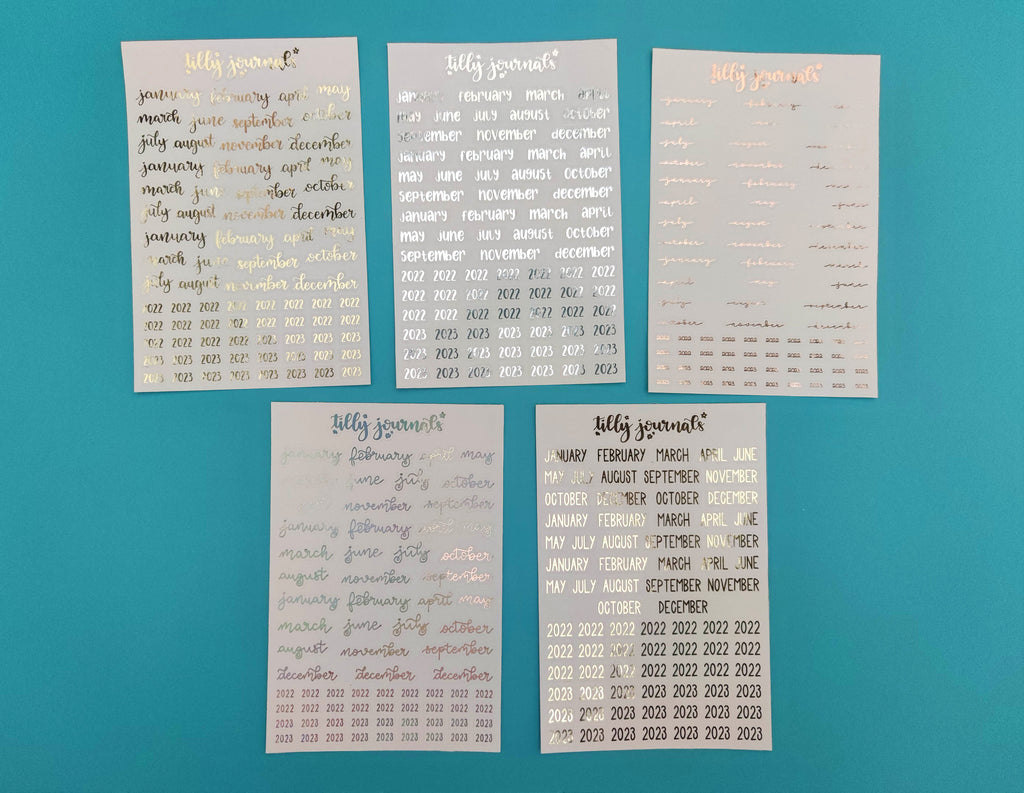 tilly journals
january february april may
march june september october
july august november december
january february april may
march june september october
july august november december
january february april may
march june september october
july august november december
2022 2022 2022 2022 2022 2022 2022 2022
2022 2022 2022 2022 2022 2022 2022 2022
2023 2023 2023 2023 2023 2023 2023 2023
2023 2023 2023 2023 2023 2023 2023 2023
2023 2023 2023 2023 2023 2023 2023 2023
tilly journals
january february march april
may june july august october
september november december
january february march april
may june july august october
september november december
january february march april
may june july august october
september november december
2022 2022 2022 2022 2022 2022 2022
2022 2022 2022 2022 2022 2022 2022
2022 2022 2022 2022 2022 2022 2022
2023 2023 2023 2023 2023 2023 2023
2023 2023 2023 2023 2023 2023 2023
2023 2023 2023 2023 2023 2023 2023
tilly journals
january february
april may
july august
october november
january february
april may june
july august september
october november december
january february
april may june
july august september
october november december
tilly journals
january february april may
june july october
november september
january february april may
march june july october
august november september
january february april may
march june july october
august november september
december december december
2022 2022 2022 2022 2022 2022 2022 2022 2022
2022 2022 2022 2022 2022 2022 2022 2022 2022
2023 2023 2023 2023 2023 2023 2023 2023 2023
2023 2023 2023 2023 2023 2023 2023 2023 2023
tilly journals
JANUARY FEBRUARY MARCH APRIL JUNE
MAY JULY AUGUST SEPTEMBER NOVEMBER
OCTOBER DECEMBER OCTOBER DECEMBER
JANUARY FEBRUARY MARCH APRIL JUNE
MAY JULY AUGUST SEPTEMBER NOVEMBER
JANUARY FEBRUARY MARCH APRIL JUNE
MAY JULY AUGUST SEPTEMBER NOVEMBER
OCTOBER DECEMBER
2022 2022 2022 2022 2022 2022 2022
2022 2022 2022 2022 2022 2022 2022
2022 2022 2022 2022 2022 2022 2022
2023 2023 2023 2023 2023 2023 2023
2023 2023 2023 2023 2023 2023 2023
2023 2023 2023 2023 2023 2023 2023